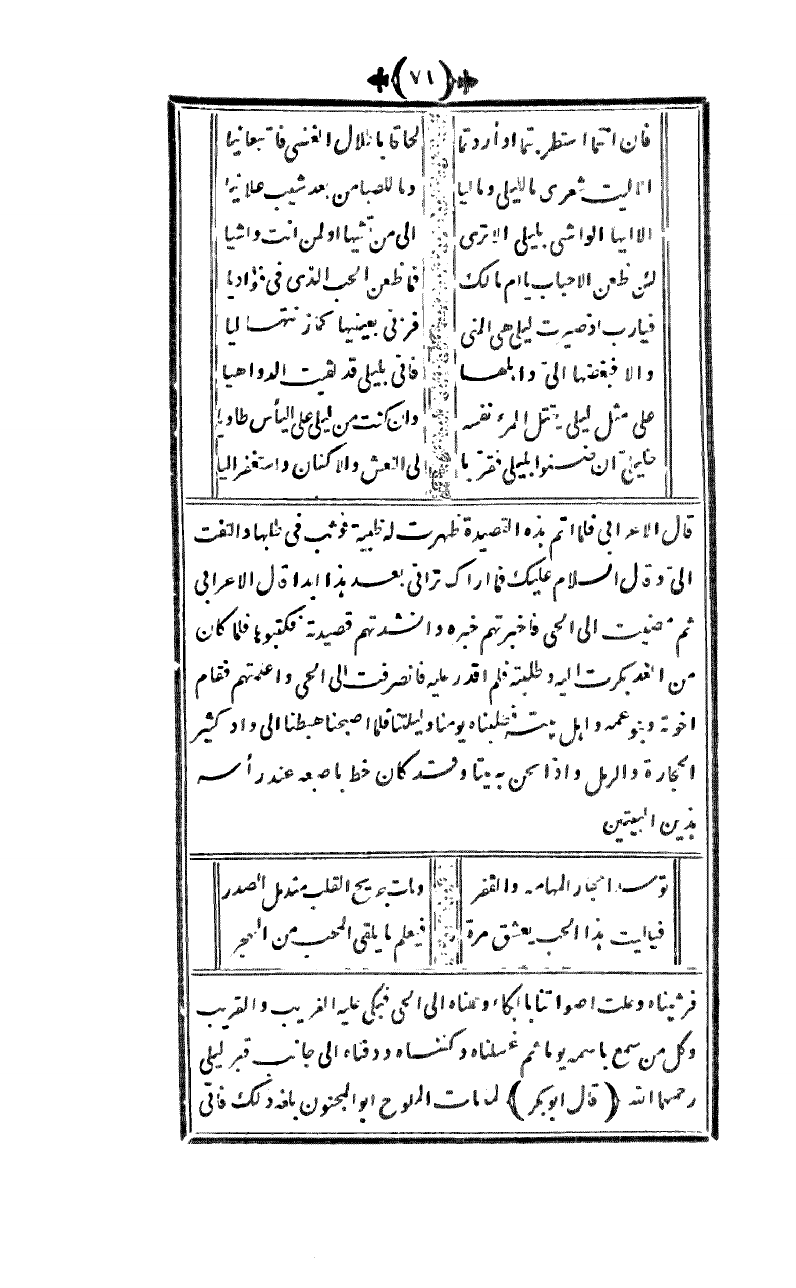 (٧١)
فان انتما استطربتما او أردتما لحاقا باطلال الغضى فاتبعانيا
الا ليت شعرى ما لليلى وماليا وما للصبا من بعد شيب علانيا
الا ايها الواشى بليلى الا ترى الى من تشيها او لمن انت واشيا
لئن ظعن الاحباب يا ام مالك فما ظعن الحب الذى فى فؤاديا
فيارب اذ صيرت ليلى هى المنى فزنى بعينيها كما زنتها ليا
والا فبغضها الىّ واهلها فانى بليلى قد لقيت الدواهيا
على مثل ليلى يقتل المرء نفسه وان كنت من ليلى على اليأس طاويا
خليلىّ ان ضنوا بليلى فقربا لى النعش والاكفان واستغفرا ليا
قال الاعرابى فلما اتم هذه القصيدة ظهرت له ظبية فوثب فى طلبها والتفت
الىّ وقال السلام عليك فما اراك ترانى بعد هذا ابدا قال الاعرابى
ثم مضيت الى الحى فاخبرتهم خبره وانشدتهم قصيدته فكتبوها فلما كان
من الغد بكرت اليه وطلبته فلم اقدر عليه فانصرفت الى الحى واعلمتهم فقام
اخوته وبنو عمه واهل بيته فطلبناه يومنا وليلتنا فلما اصبحنا هبطنا الى واد كثير
الحجارة والرمل واذا نحن به ميتا وقد كان خط باصبعه عند رأسه
هذين البيتين
توسد احجار المهامه والقفر ومات جريح القلب مندمل الصدر
فياليت هذا الحب يعشق مرة فيعلم ما يلقى المحب من الهجر
فرثيناه وعلت اصواتنا بالبكاء وحملناه الى الحى فبكى عليه الغريب والقريب
وكل من سمع باسمه يوما ثم غسلناه وكفناه ودفناه الى جانب قبر ليلى
رحمهما الله (قال ابوبكر) لما مات الملوح ابو المجنون بلغه ذلك فاتى